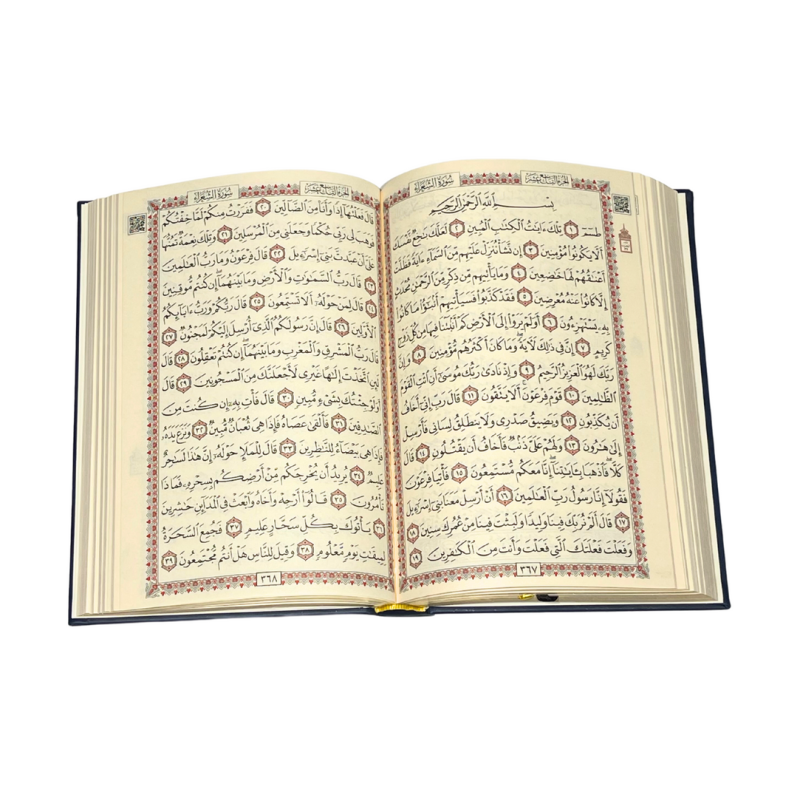 الجزء التاسع عشر سُورَةُ الشُّعَرَاءِ
بِسْمِ ٱللَّهِ ٱلرَّحْمَٰنِ ٱلرَّحِيمِ
طسٓمٓ ١ تِلْكَ ءَايَٰتُ ٱلْكِتَٰبِ ٱلْمُبِينِ ٢ لَعَلَّكَ بَٰخِعٌ نَّفْسَكَ
أَلَّا يَكُونُوا۟ مُؤْمِنِينَ ٣ إِن نَّشَأْ نُنَزِّلْ عَلَيْهِم مِّنَ ٱلسَّمَآءِ ءَايَةً فَظَلَّتْ
أَعْنَٰقُهُمْ لَهَا خَٰضِعِينَ ٤ وَمَا يَأْتِيهِم مِّن ذِكْرٍ مِّنَ ٱلرَّحْمَٰنِ مُحْدَثٍ
إِلَّا كَانُوا۟ عَنْهُ مُعْرِضِينَ ٥ فَقَدْ كَذَّبُوا۟ فَسَيَأْتِيهِمْ أَنۢبَٰٓؤُا۟ مَا كَانُوا۟
بِهِۦ يَسْتَهْزِءُونَ ٦ أَوَلَمْ يَرَوْا۟ إِلَى ٱلْأَرْضِ كَمْ أَنۢبَتْنَا فِيهَا مِن كُلِّ زَوْجٍ
كَرِيمٍ ٧ إِنَّ فِى ذَٰلِكَ لَءَايَةً وَمَا كَانَ أَكْثَرُهُم مُّؤْمِنِينَ ٨ وَإِنَّ
رَبَّكَ لَهُوَ ٱلْعَزِيزُ ٱلرَّحِيمُ ٩ وَإِذْ نَادَىٰ رَبُّكَ مُوسَىٰٓ أَنِ ٱئْتِ ٱلْقَوْمَ
ٱلظَّٰلِمِينَ ١٠ قَوْمَ فِرْعَوْنَ أَلَا يَتَّقُونَ ١١ قَالَ رَبِّ إِنِّىٓ أَخَافُ
أَن يُكَذِّبُونِ ١٢ وَيَضِيقُ صَدْرِى وَلَا يَنطَلِقُ لِسَانِى فَأَرْسِلْ
إِلَىٰ هَٰرُونَ ١٣ وَلَهُمْ عَلَىَّ ذَنۢبٌ فَأَخَافُ أَن يَقْتُلُونِ ١٤ قَالَ
كَلَّا فَٱذْهَبَا بِـَٔايَٰتِنَآ إِنَّا مَعَكُم مُّسْتَمِعُونَ ١٥ فَأْتِيَا فِرْعَوْنَ
فَقُولَآ إِنَّا رَسُولُ رَبِّ ٱلْعَٰلَمِينَ ١٦ أَنْ أَرْسِلْ مَعَنَا بَنِىٓ إِسْرَٰٓءِيلَ
١٧ قَالَ أَلَمْ نُرَبِّكَ فِينَا وَلِيدًا وَلَبِثْتَ فِينَا مِنْ عُمُرِكَ سِنِينَ ١٨
وَفَعَلْتَ فَعْلَتَكَ ٱلَّتِى فَعَلْتَ وَأَنتَ مِنَ ٱلْكَٰفِرِينَ ١٩
٣٦٧
الجزء التاسع عشر سُورَةُ الشُّعَرَاءِ
قَالَ فَعَلْتُهَآ إِذًا وَأَنَا۠ مِنَ ٱلضَّآلِّينَ ٢٠ فَفَرَرْتُ مِنكُمْ لَمَّا خِفْتُكُمْ
فَوَهَبَ لِى رَبِّى حُكْمًا وَجَعَلَنِى مِنَ ٱلْمُرْسَلِينَ ٢١ وَتِلْكَ نِعْمَةٌ تَمُنُّهَا
عَلَىَّ أَنْ عَبَّدتَّ بَنِىٓ إِسْرَٰٓءِيلَ ٢٢ قَالَ فِرْعَوْنُ وَمَا رَبُّ ٱلْعَٰلَمِينَ
٢٣ قَالَ رَبُّ ٱلسَّمَٰوَٰتِ وَٱلْأَرْضِ وَمَا بَيْنَهُمَآ إِن كُنتُم مُّوقِنِينَ
٢٤ قَالَ لِمَنْ حَوْلَهُۥٓ أَلَا تَسْتَمِعُونَ ٢٥ قَالَ رَبُّكُمْ وَرَبُّ ءَابَآئِكُمُ
ٱلْأَوَّلِينَ ٢٦ قَالَ إِنَّ رَسُولَكُمُ ٱلَّذِىٓ أُرْسِلَ إِلَيْكُمْ لَمَجْنُونٌ ٢٧
قَالَ رَبُّ ٱلْمَشْرِقِ وَٱلْمَغْرِبِ وَمَا بَيْنَهُمَآ إِن كُنتُمْ تَعْقِلُونَ ٢٨
قَالَ لَئِنِ ٱتَّخَذْتَ إِلَٰهًا غَيْرِى لَأَجْعَلَنَّكَ مِنَ ٱلْمَسْجُونِينَ ٢٩ قَالَ
أَوَلَوْ جِئْتُكَ بِشَىْءٍ مُّبِينٍ ٣٠ قَالَ فَأْتِ بِهِۦٓ إِن كُنتَ مِنَ
ٱلصَّٰدِقِينَ ٣١ فَأَلْقَىٰ عَصَاهُ فَإِذَا هِىَ ثُعْبَانٌ مُّبِينٌ ٣٢ وَنَزَعَ يَدَهُۥ
فَإِذَا هِىَ بَيْضَآءُ لِلنَّٰظِرِينَ ٣٣ قَالَ لِلْمَلَإِ حَوْلَهُۥٓ إِنَّ هَٰذَا لَسَٰحِرٌ
عَلِيمٌ ٣٤ يُرِيدُ أَن يُخْرِجَكُم مِّنْ أَرْضِكُم بِسِحْرِهِۦ فَمَاذَا
تَأْمُرُونَ ٣٥ قَالُوٓا۟ أَرْجِهْ وَأَخَاهُ وَٱبْعَثْ فِى ٱلْمَدَآئِنِ حَٰشِرِينَ
٣٦ يَأْتُوكَ بِكُلِّ سَحَّارٍ عَلِيمٍ ٣٧ فَجُمِعَ ٱلسَّحَرَةُ
لِمِيقَٰتِ يَوْمٍ مَّعْلُومٍ ٣٨ وَقِيلَ لِلنَّاسِ هَلْ أَنتُم مُّجْتَمِعُونَ ٣٩
٣٦٨